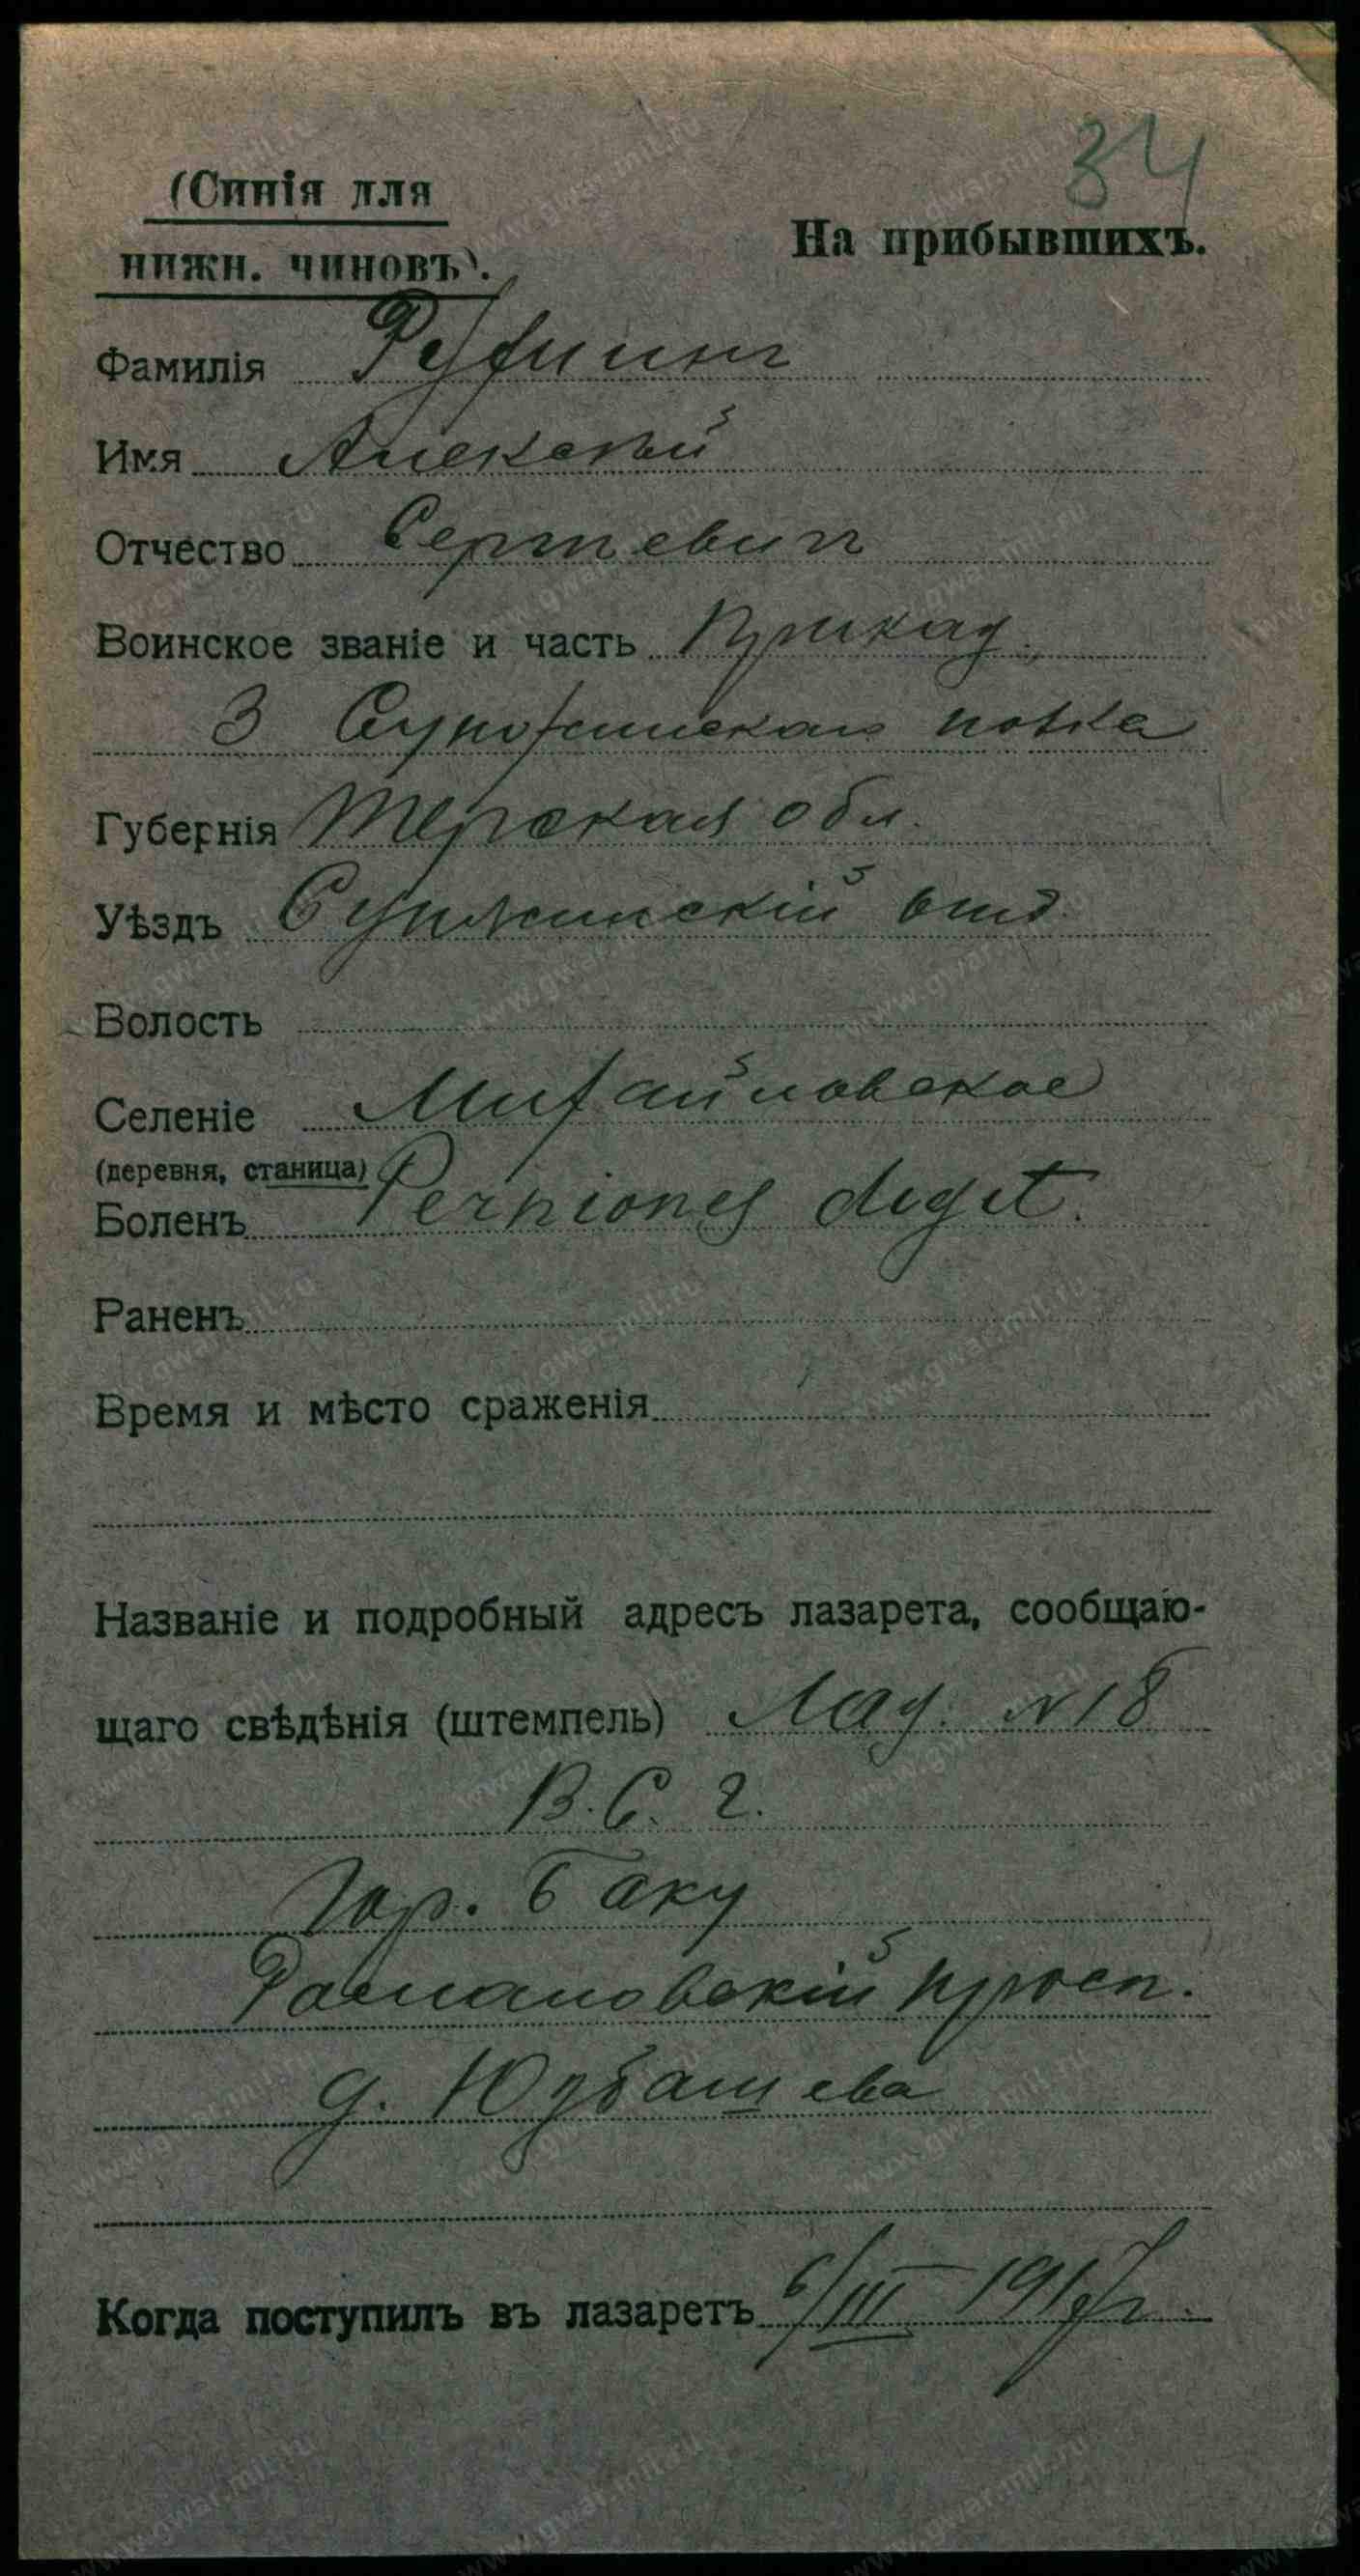 34
(Синія для
нижн. чиновъ).
На прибывшихъ.
Фамилія
Имя Алексѣй
Отчество Сергѣевич
Воинское званіе и часть Приказ.
3 Сунженскаго полка
Губернія Терская обл.
Уѣздъ Сунженскій отд.
Волость
Селеніе Михайловское
(деревня, станица)
Боленъ Perniones digit.
Раненъ
Время и мѣсто сраженія
Названіе и подробный адресъ лазарета, сообщаю-
щаго свѣдѣнія (штемпель) Лаз. N 18
В.С.Г.
Гор. Баку
Романовскій просп.
д. Юзбашева
Когда поступилъ въ лазаретъ 6/III 1917 г.